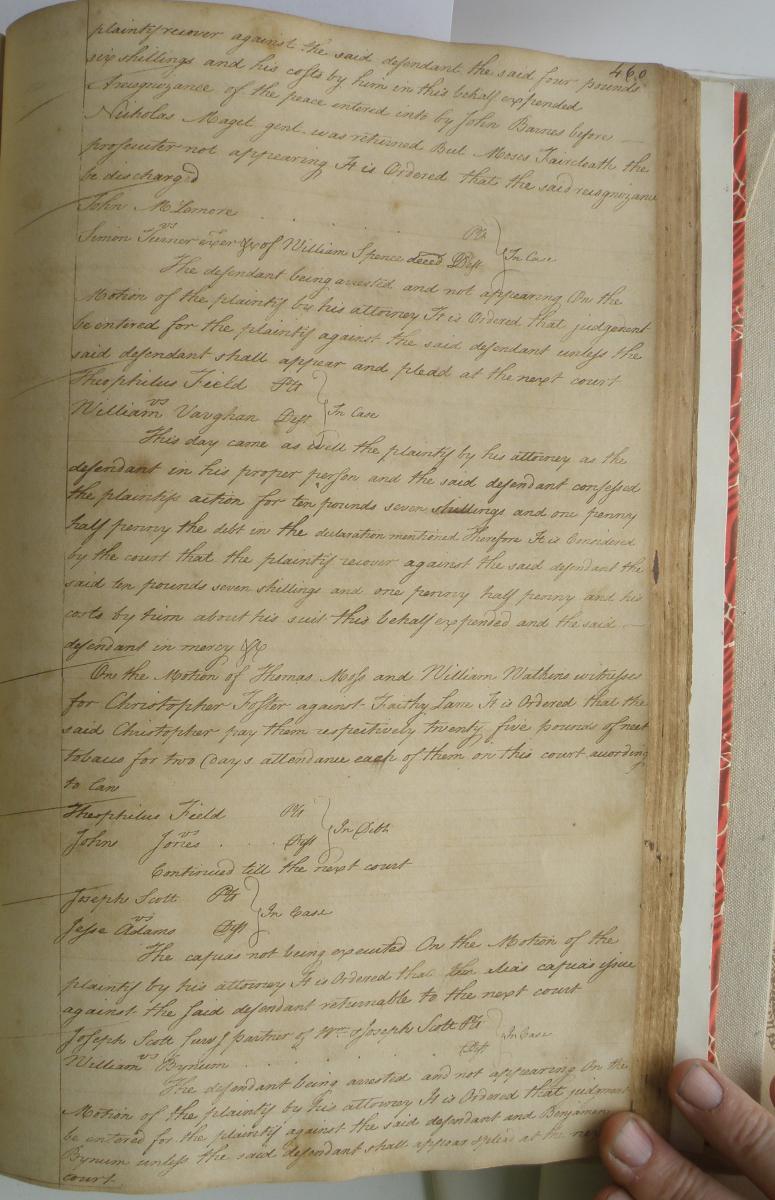 460
plaintif recover against the said defendant the said four pounds
six shillings and his costs by him in this behalf expended
A recognizance of the peace entered into by John Barnes before
Nicholas Maget gent. was returned But Moses Faircloath the
prosecuter not appearing It is Ordered that the said recognizance
be discharged
John McLemore Plt
vs } In Case
Simon Turner exer &c of William Spence deced Deft
The defendant being arrested and not appearing On the
Motion of the plaintif by his attorney It is Ordered that judgement
be entered for the plaintif against the said defendant unless the
said defendant shall appear and plead at the next court
Theophilus Field Plt
vs } In Case
William Vaughan Deft
This day came as well the plaintif by his attorney as the
defendant in his proper person and the said defendant confessed
the plaintifs action for ten pounds seven shillings and one penny
half penny the debt in the declaration mentioned Therefore It is Considered
by the court that the plaintif recover against the said defendant the
said ten pounds seven shillings and one penny half penny and his
costs by him about his suit this behalf expended and the said
defendant in mercy &c
On the Motion of Thomas Moss and William Watkins witnesses
for Christopher Foster against Faithy Lane It is Ordered that the
said Christopher pay them respectively twenty five pounds of nett
tobacco for two Days attendance each of them on this court according
to Law
Theophilus Field Plt
vs } In Debt
John Jones Deft
Continued till the next court
Joseph Scott Plt
vs } In Case
Jesse Adams Deft
The capias not being executed On the Motion of the
plaintif by his attorney It is Ordered that an alias capias issue
against the said defendant returnable to the next court
Joseph Scott Surv.g partner of Wm & Joseph Scott Plt
vs } In Case
William Bynum Deft
The defendant being arrested and not appearing On the
Motion of the plaintif by his attorney It is Ordered that judgment
be entered for the plaintif against the said defendant and Benjamen
Bynum unless the said defendant shall appear & plead at the next
court